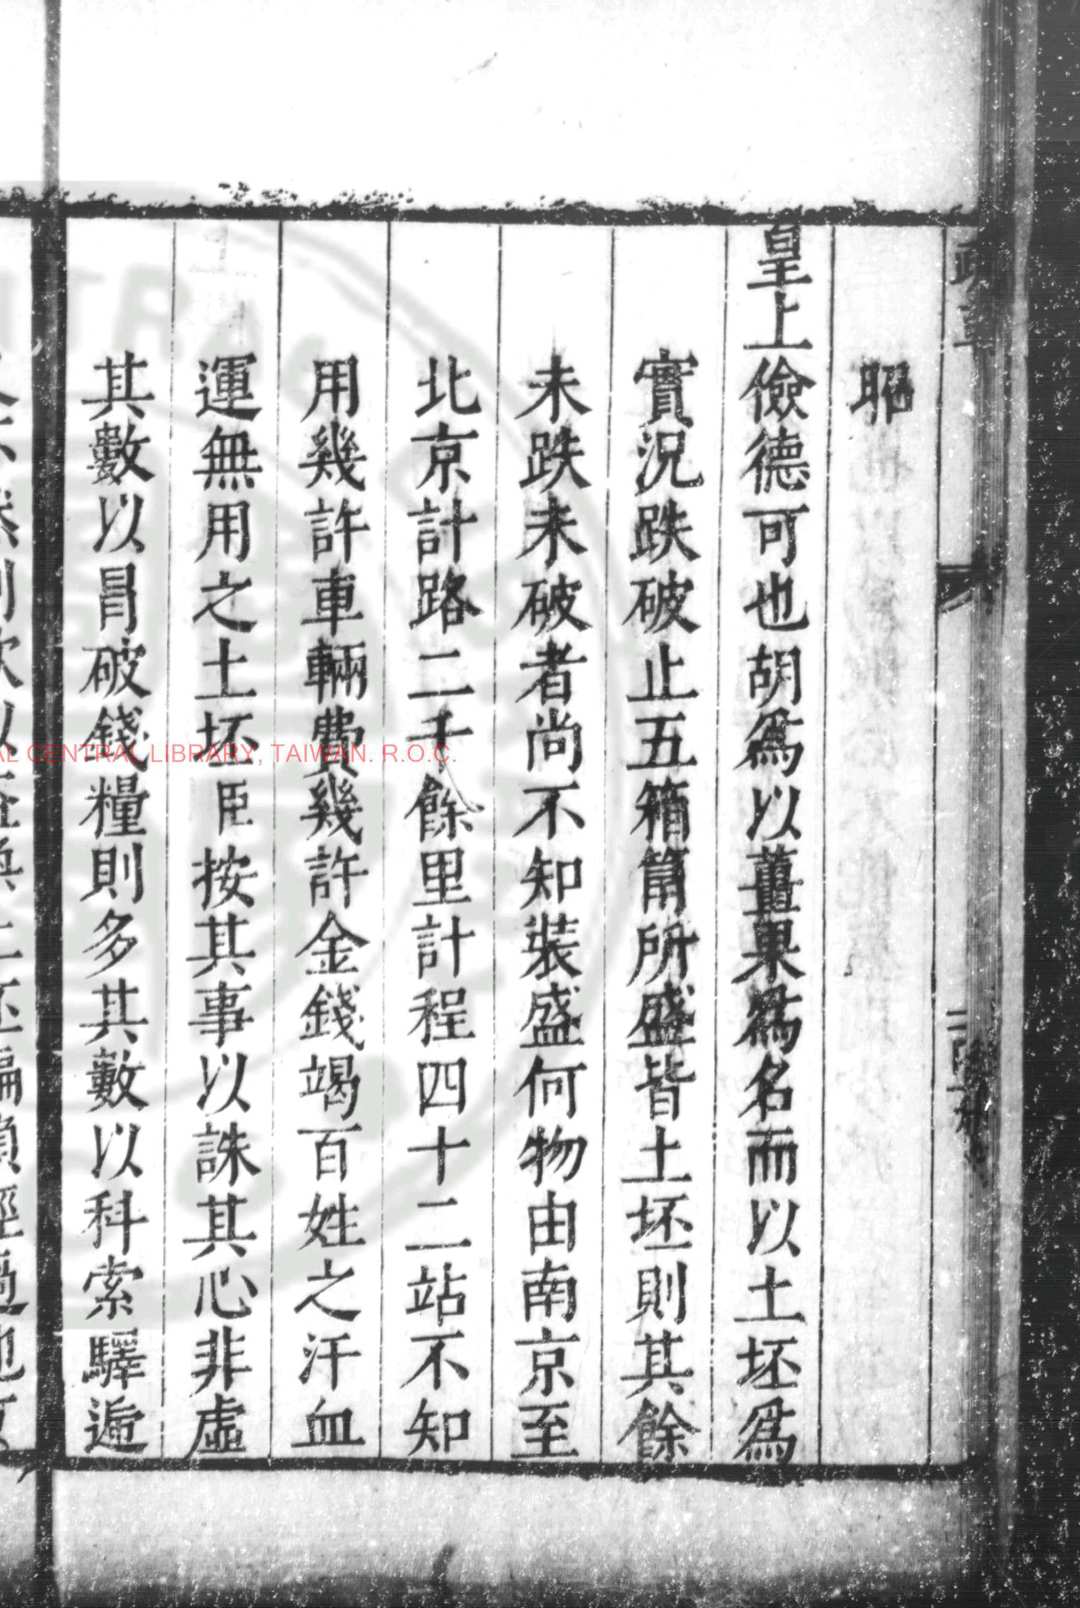 昭
皇上儉德可也胡爲以薑果爲名而以土坯爲
實況跌破止五箱篇所盛皆土坯則其餘
未跌未破者尚不知裝盛何物由南京至
北京計路二千餘里計程四十二站不知
用幾許車輛費幾許金錢竭百姓之汗血
運無用之土坯臣按其事以誅其心非虛
其數以冒破錢糧則多其數以科索驛遞
CENTRAL LIBRARY, TAIWAN. R.O.C.